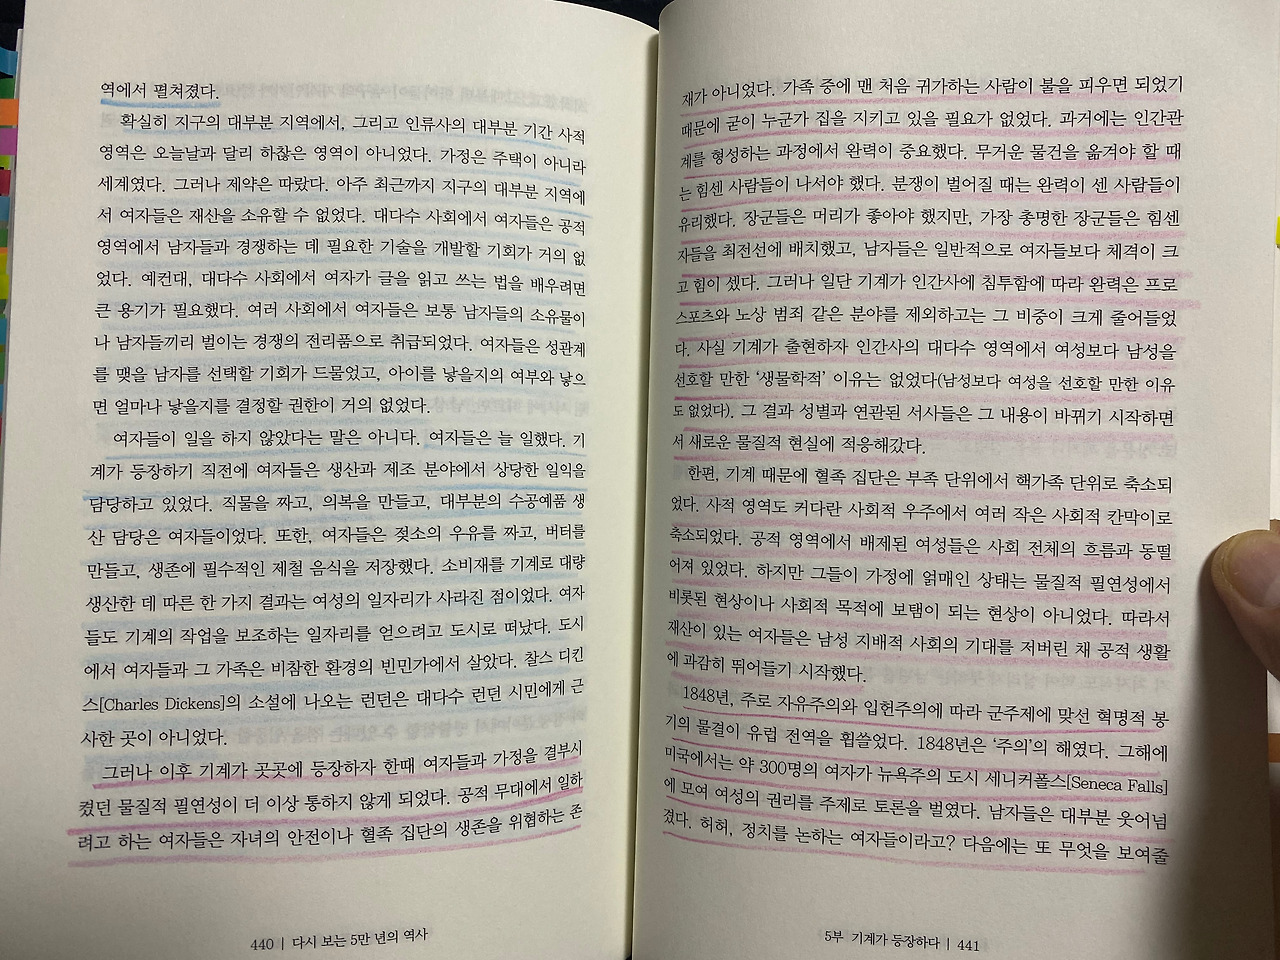 역에서 펼쳐졌다.
확실히 지구의 대부분 지역에서, 그리고 인류사의 대부분 기간 사적
영역은 오늘날과 달리 하찮은 영역이 아니었다. 가정은 주택이 아니라
세계였다. 그러나 제약은 따랐다. 아주 최근까지 지구의 대부분 지역에
서 여자들은 재산을 소유할 수 없었다. 대다수 사회에서 여자들은 공적
영역에서 남자들과 경쟁하는 데 필요한 기술을 개발할 기회가 거의 없
었다. 예컨대, 대다수 사회에서 여자가 글을 읽고 쓰는 법을 배우려면
큰 용기가 필요했다. 여러 사회에서 여자들은 보통 남자들의 소유물이
나 남자들끼리 벌이는 경쟁의 전리품으로 취급되었다. 여자들은 성관계
를 맺을 남자를 선택할 기회가 드물었고, 아이를 낳을지의 여부와 낳으
면 얼마나 낳을지를 결정할 권한이 거의 없었다.
여자들이 일을 하지 않았다는 말은 아니다. 여자들은 늘 일했다. 기
계가 등장하기 직전에 여자들은 생산과 제조 분야에서 상당한 일익을
담당하고 있었다. 직물을 짜고, 의복을 만들고, 대부분의 수공예품 생
산 담당은 여자들이었다. 또한, 여자들은 젖소의 우유를 짜고, 버터를
만들고, 생존에 필수적인 제철 음식을 저장했다. 소비재를 기계로 대량
생산한 데 따른 한 가지 결과는 여성의 일자리가 사라진 점이었다. 여자
들도 기계의 작업을 보조하는 일자리를 얻으려고 도시로 떠났다. 도시
에서 여자들과 그 가족은 비참한 환경의 빈민가에서 살았다. 찰스 디킨
스[Charles Dickens]의 소설에 나오는 런던은 대다수 런던 시민에게 근
사한 곳이 아니었다.
그러나 이후 기계가 곳곳에 등장하자 한때 여자들과 가정을 결부시
켰던 물질적 필연성이 더 이상 통하지 않게 되었다. 공적 무대에서 일하
려고 하는 여자들은 자녀의 안전이나 혈족 집단의 생존을 위협하는 존
440 | 다시 보는 5만 년의 역사
재가 아니었다. 가족 중에 맨 처음 귀가하는 사람이 불을 피우면 되었기
때문에 굳이 누군가 집을 지키고 있을 필요가 없었다. 과거에는 인간관
계를 형성하는 과정에서 완력이 중요했다. 무거운 물건을 옮겨야 할 때
는 힘센 사람들이 나서야 했다. 분쟁이 벌어질 때는 완력이 센 사람들이
유리했다. 장군들은 머리가 좋아야 했지만, 가장 총명한 장군들은 힘센
자들을 최전선에 배치했고, 남자들은 일반적으로 여자들보다 체격이 크
고 힘이 셌다. 그러나 일단 기계가 인간사에 침투함에 따라 완력은 프로
스포츠와 노상 범죄 같은 분야를 제외하고는 그 비중이 크게 줄어들었
다. 사실 기계가 출현하자 인간사의 대다수 영역에서 여성보다 남성을
선호할 만한 ‘생물학적’ 이유는 없었다(남성보다 여성을 선호할 만한 이유
도 없었다). 그 결과 성별과 연관된 서사들은 그 내용이 바뀌기 시작하면
서 새로운 물질적 현실에 적응해갔다.
한편, 기계 때문에 혈족 집단은 부족 단위에서 핵가족 단위로 축소되
었다. 사적 영역도 커다란 사회적 우주에서 여러 작은 사회적 칸막이로
축소되었다. 공적 영역에서 배제된 여성들은 사회 전체의 흐름과 동떨
어져 있었다. 하지만 그들이 가정에 얽매인 상태는 물질적 필연성에서
비롯된 현상이나 사회적 목적에 보탬이 되는 현상이 아니었다. 따라서
재산이 있는 여자들은 남성 지배적 사회의 기대를 저버린 채 공적 생활
에 과감히 뛰어들기 시작했다.
1848년, 주로 자유주의와 입헌주의에 따라 군주제에 맞선 혁명적 봉
기의 물결이 유럽 전역을 휩쓸었다. 1848년은 ‘주의’의 해였다. 그해에
미국에서는 약 300명의 여자가 뉴욕주의 도시 세니커폴스[Seneca Falls]
에 모여 여성의 권리를 주제로 토론을 벌였다. 남자들은 대부분 웃어넘
겼다. 허허, 정치를 논하는 여자들이라고? 다음에는 또 무엇을 보여줄
5부 기계가 등장하다 | 441